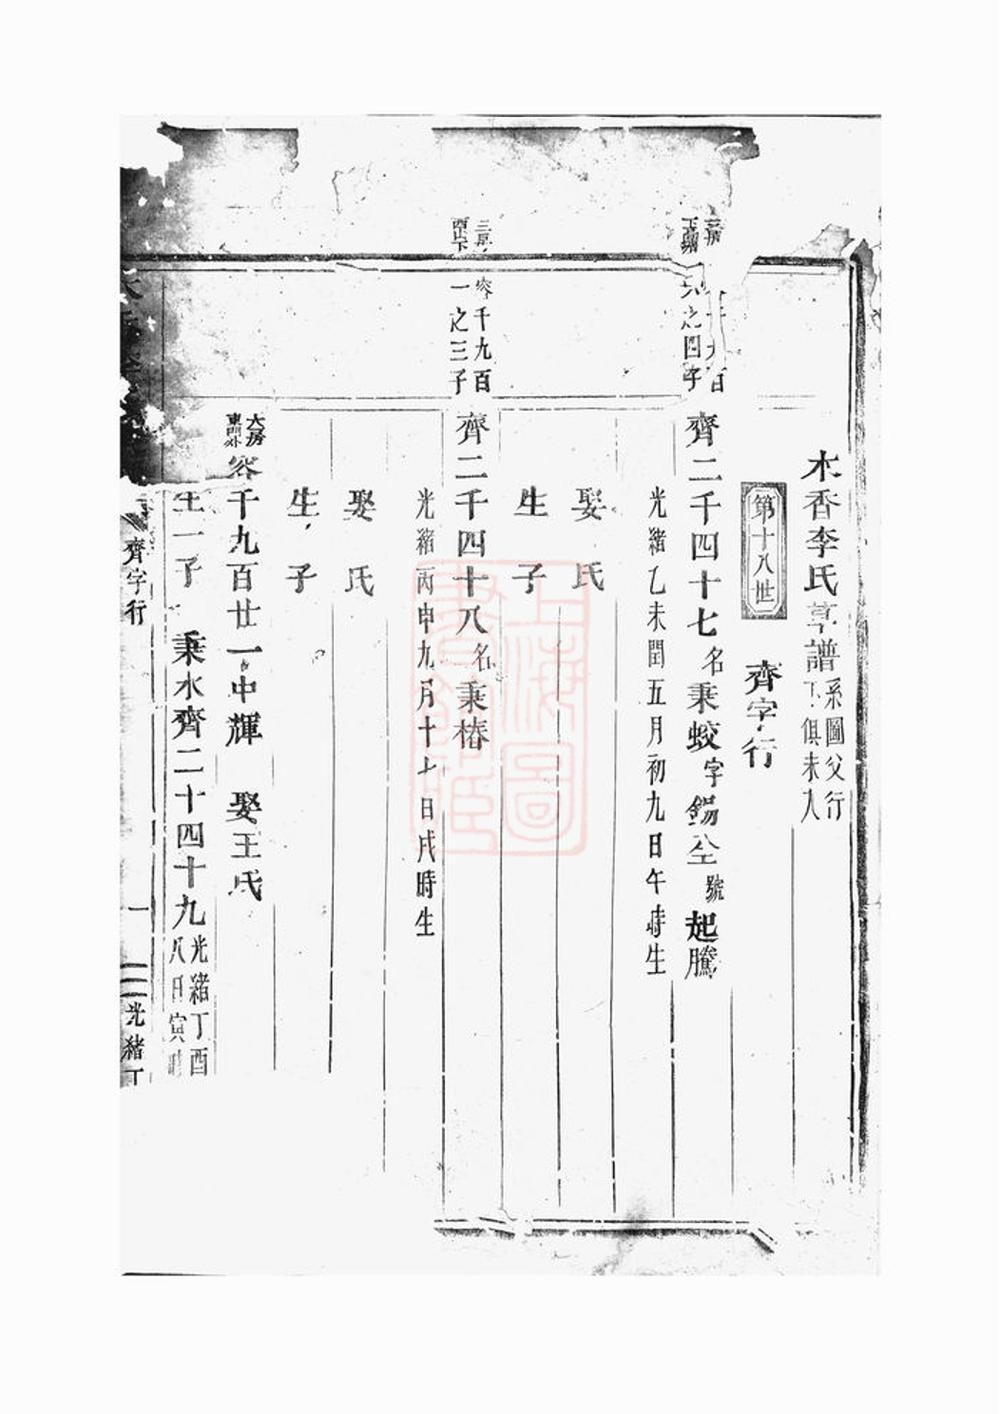 木香李氏享譜
系圖父行
俱未入
第十八世
齊字行
六之四子
齊二千四十七名秉蛟字錫公號起騰
光緒乙未閏五月初九日午時生
娶 氏
生 子
三房
西山下
容千九百
一之三子
齊二千四十八名秉椿
光緒丙申九月十七日戌時生
娶 氏
生 子
大房
東門外
容千九百廿一中輝 娶王氏
生一子 秉水齊二十四十九
光緒丁酉
八日寅時
齊字行
一
光緒丁
上海圖書館藏